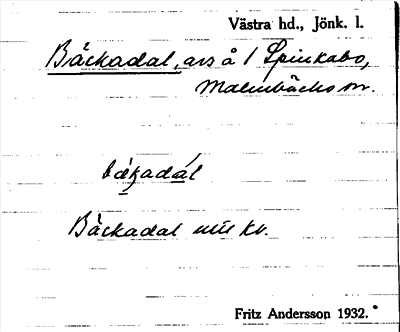 Västra hd., Jönk. l.
Bäckadal, avs å 1 Spinkabo,
Malmbäcks sn.
bäkadàl
Bäckadal mtl kv.
Fritz Andersson 1932.